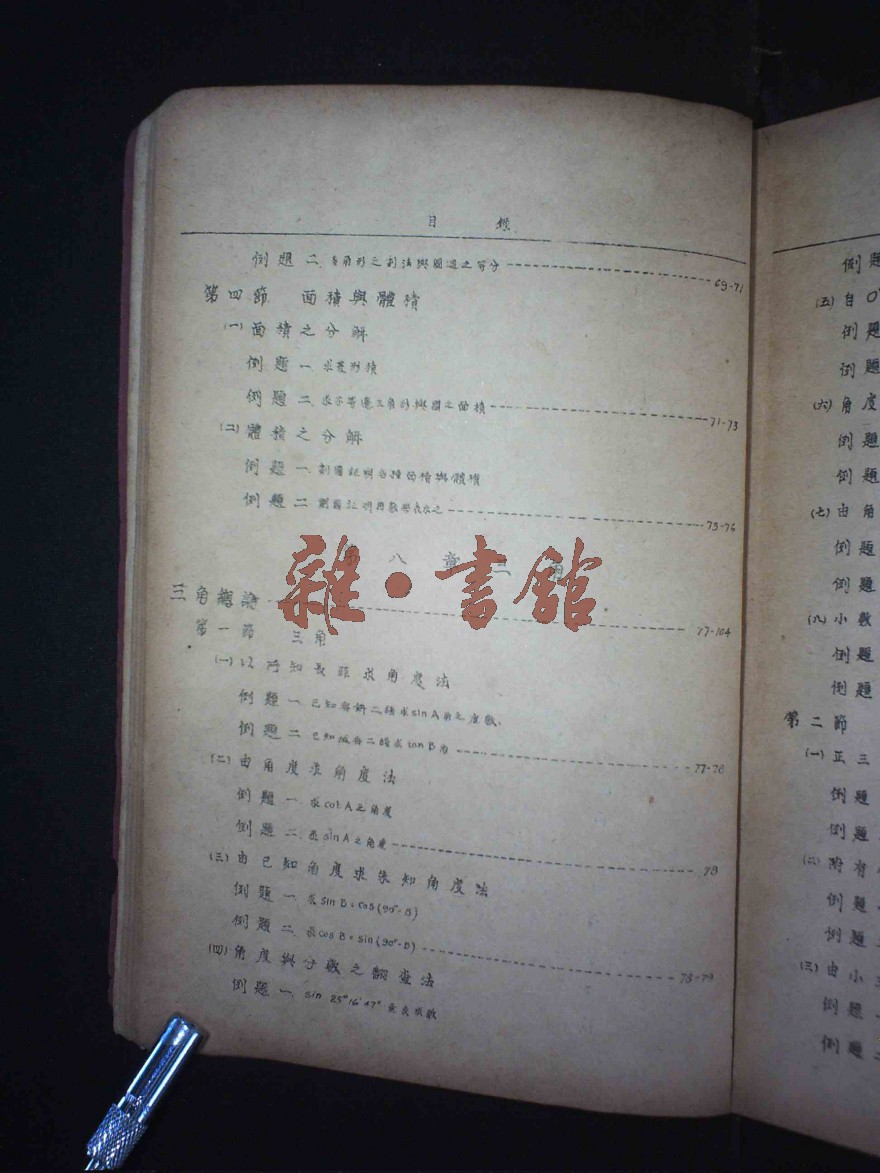 目 錄
例題二 多角形之劃法與圓週之等分 69-71
第四節 面積與體積
(一)面積之分解
例題一 求菱形積
例題二 求不等邊三角形與圓之面積 71-73
(二)體積之分解
例題一 劃圖証明各種面積與體積
例題二 劃圖証明用數學表求之 73-76
第八章 三角
三角總論 77-104
第一節 三角
(一)以所知長距求角度法
例題一 已知 二 求sin A角之度數
例題二 已知 二 求tan B角 77-78
(二)由角度求角度法
例題一 求cot A之角度
例題二 求sin A之角度 78
(三)由已知角度求未知角度法
例題一 求sin B=cos(90°-B)
例題二 求cos B=sin(90°-B) 78-79
(四)角度與分數之翻查法
例題一 sin 25°16'47"
雜·書館
例題
(五)自0°
例題
例題
(六)角度
例題
例題
(七)由角
例題
例題
(八)小數
例題
例題
第二節
(一)正三
例題
例題
(二)附有
例題
例題
(三)由小
例題
例題